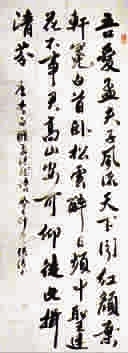 吾爱孟夫子風流天下闻红颜棄
軒冕白首卧松雲醉月頻中聖迷
花不事君高山安可仰徒此揖
清芬
唐李白贈孟浩然詩